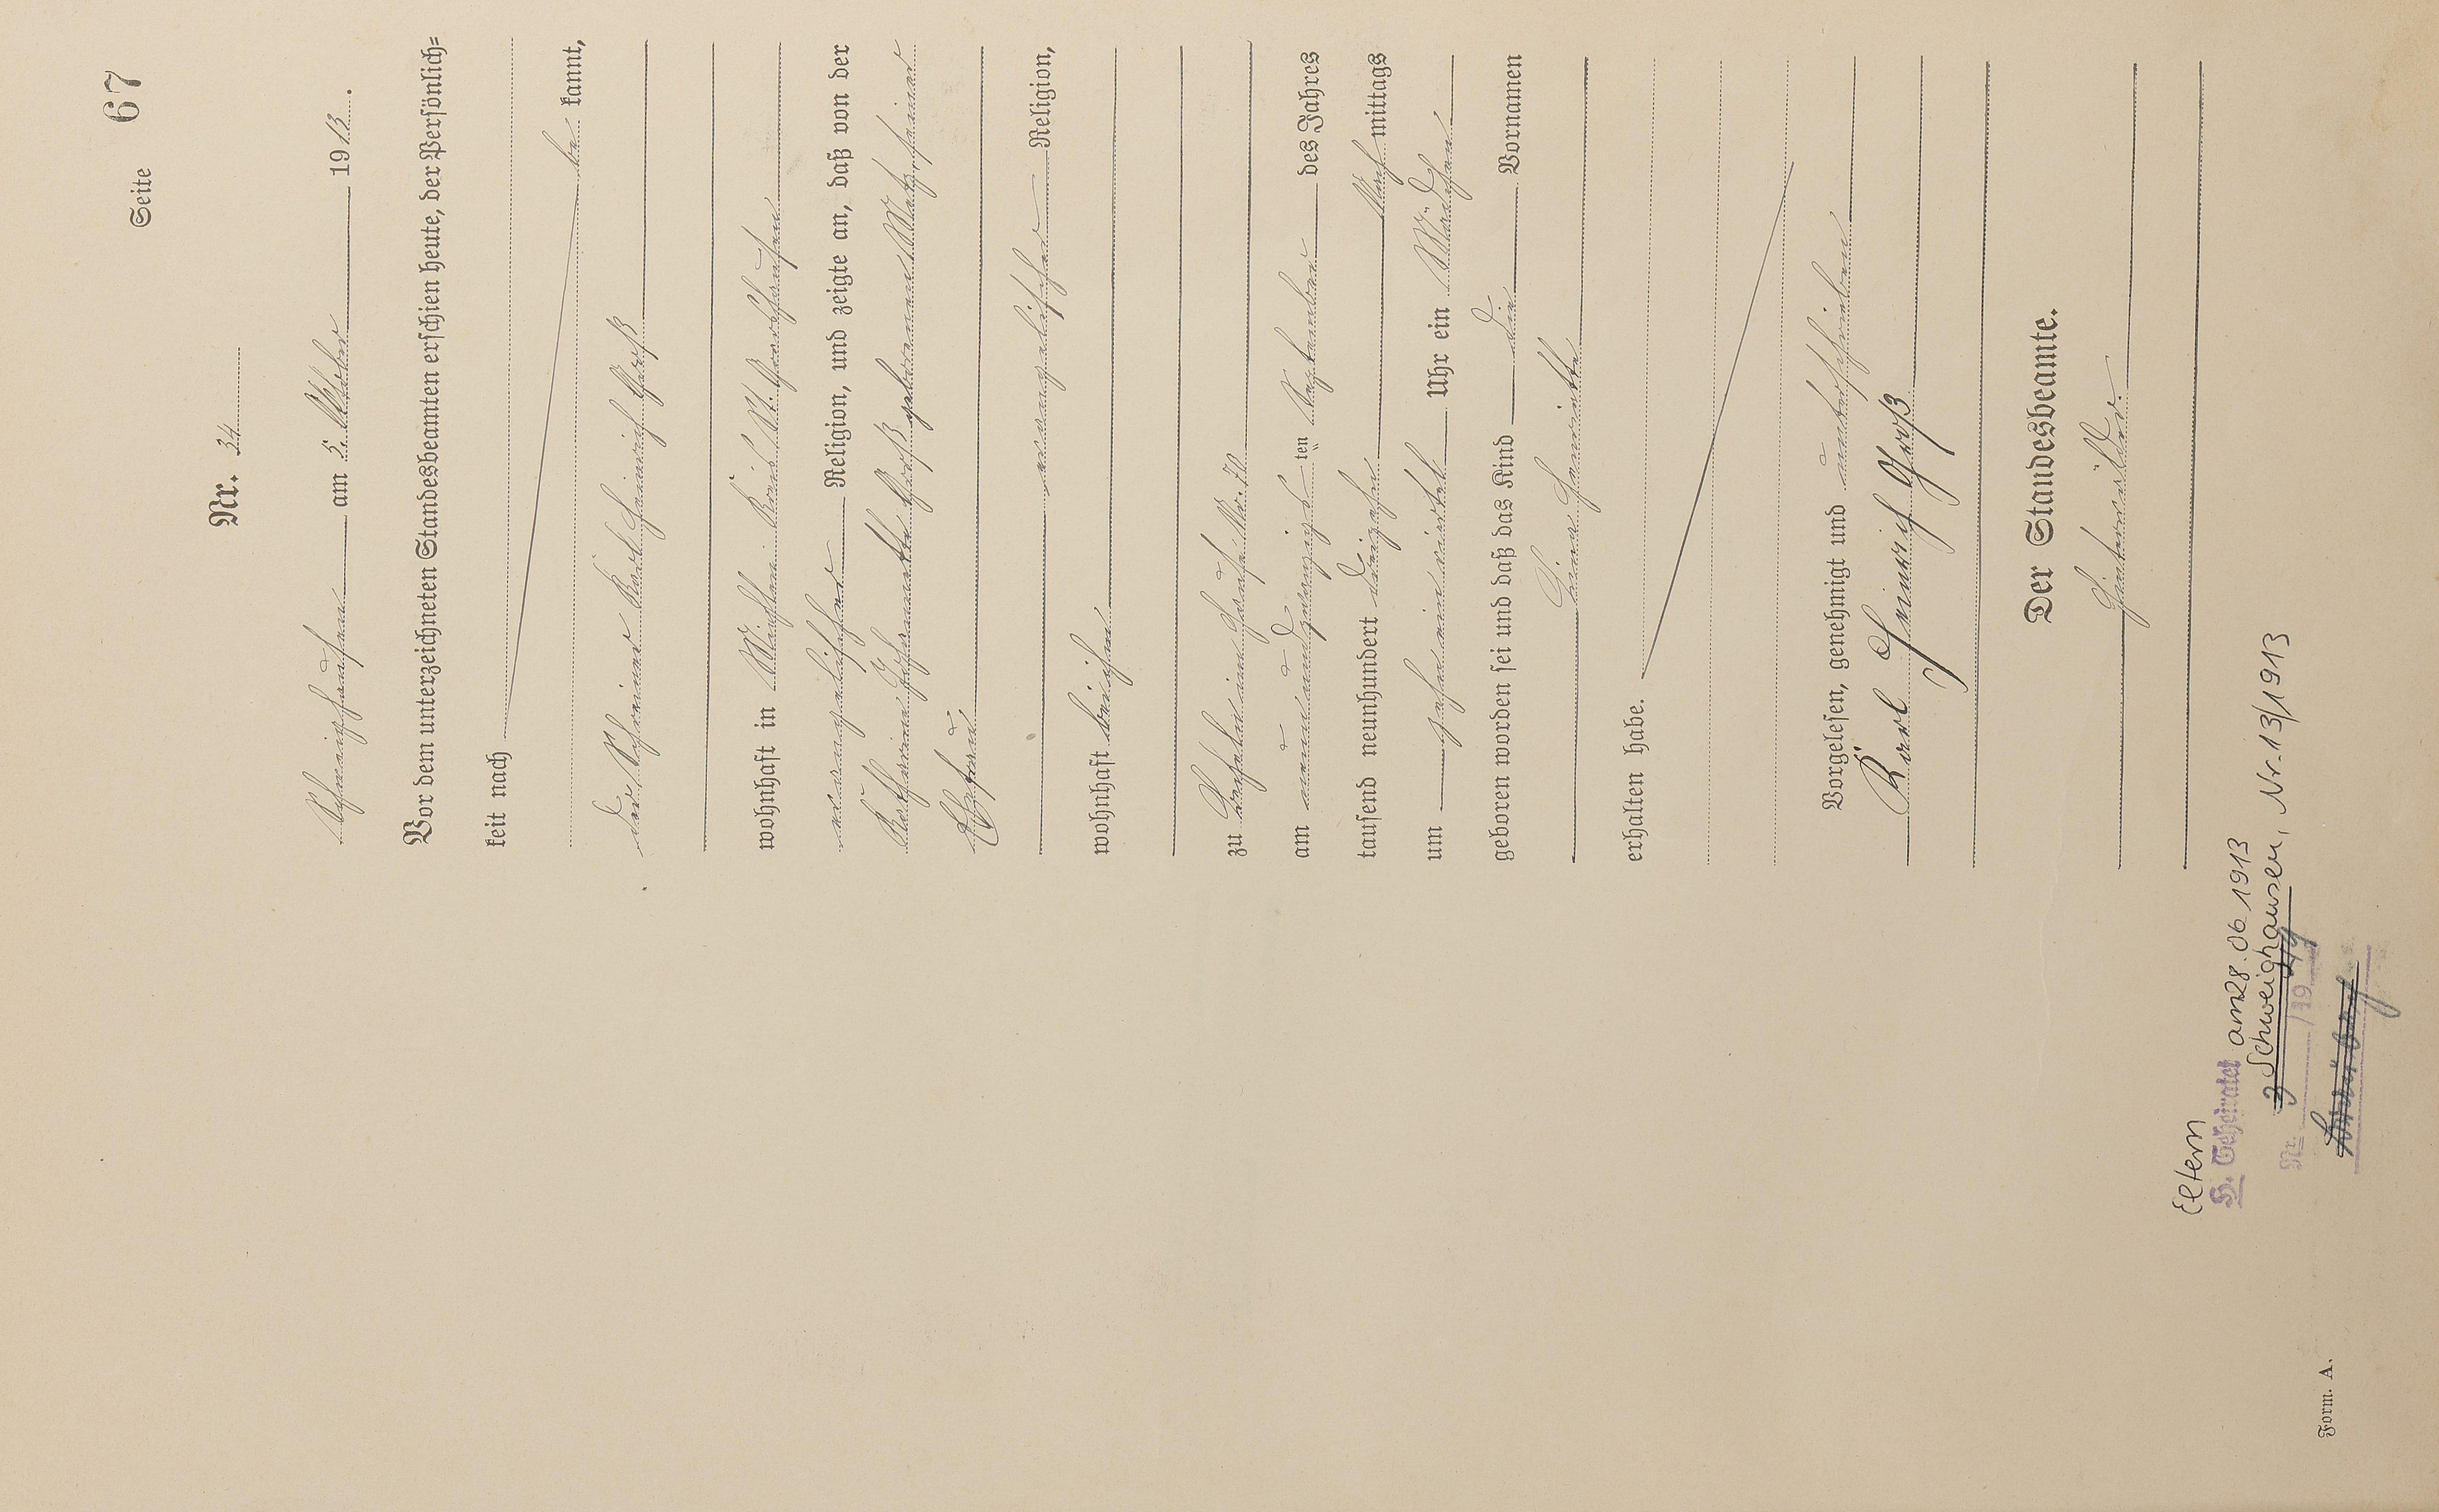 Seite 67
Nr. 34
Schweighausen am 5. Oktober 1913.
Vor dem unterzeichneten Standesbeamten erschien heute, der Persönlich=
keit nach
be kannt,
der Schreiner Karl Heinrich Groß
wohnhaft in Kreis St. Goarshausen
evangelischer Religion, und zeigte an, daß von der
Katharina Groß geborenen seiner
Ehefrau
evangelischer Religion,
wohnhaft bei ihm
zu im Hause Nr. 70
am neunundzwanzigsten September des Jahres
tausend neunhundert dreizehn Nach mittags
um zehneinviertel Uhr ein Mädchen
geboren worden sei und daß das Kind die Vornamen
Lina Henriette
erhalten habe.
Vorgelesen, genehmigt und unterschrieben
Karl Heinrich Groß
Der Standesbeamte.
Hinterwälder.
Eltern
H. Geheiratet am 28.06.1913
Schweighausen, Nr. 13/1913
Nr. /19
Form. A.